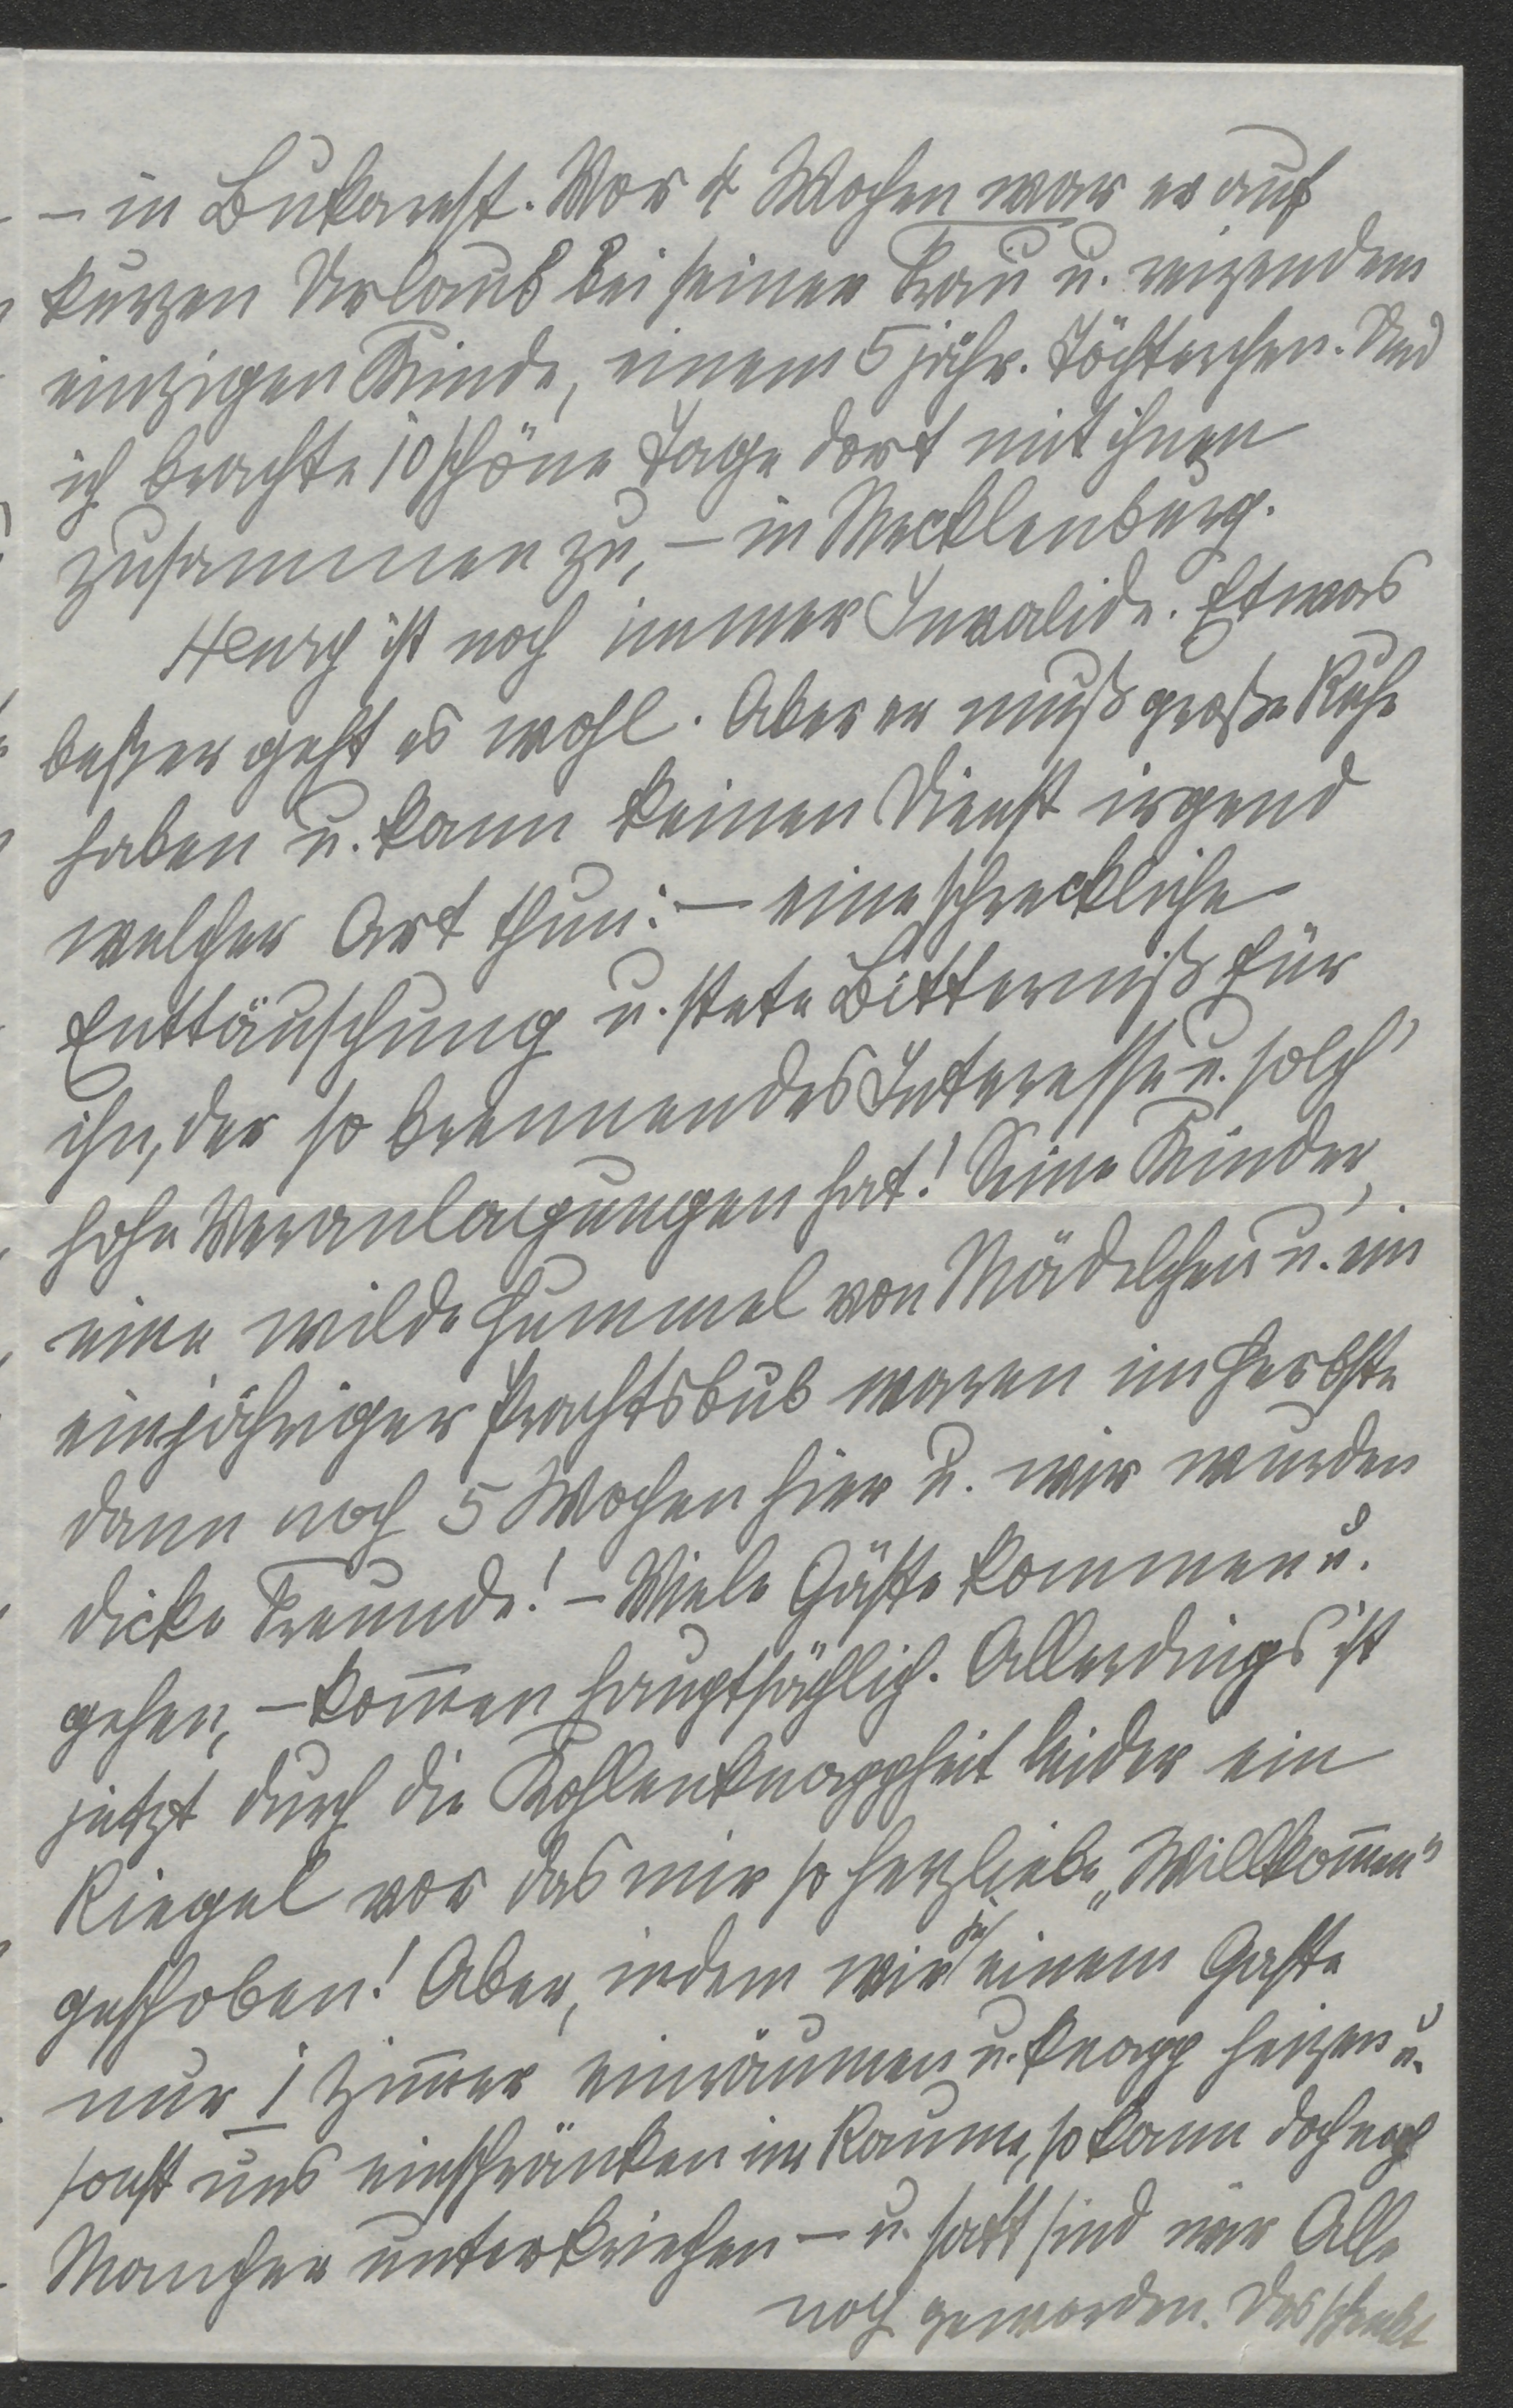 – in Bukarest. Vor 4 Wochen war er auf
kurzen Urlaub bei seiner Frau u. reizendem
einzigen Kinde, einem 5 jähr. Töchterchen. Und
ich brachte 10 schöne Tage dort mit ihnen
zusammen zu, – in Mecklenburg.
Henry ist noch immer Invalide. Etwas
besser geht es wohl. Aber er muß große Ruhe
haben u. kann keinen Dienst irgend
welcher Art thun: – eine schreckliche
Enttäuschung u. stete Bitterniß für
ihn, der so brennendes Interesse u. solch'
hohe Veranlagungen hat! Seine Kinder,
eine wilde Hummel von Mädelchen u. ein
einjähriger Prachtsbub waren im Herbste
dann noch 5 Wochen hier u. wir wurden
dicke Freunde! – Viele Gäste kommen u.
gehen, – kom̅en hauptsächlich. Allerdings ist
jetzt durch die Kohlenknappheit leider ein
Riegel vor das mir so herzliebe „Willkom̅en"
geschoben! Aber, indem wir je einem Gaste
nur 1 Zim̅er einräumen u. knapp heizen u.
sonst uns einschränken im Raume, so kann doch noch
Mancher unterkriechen – u. satt sind wir Alle
noch geworden. Das